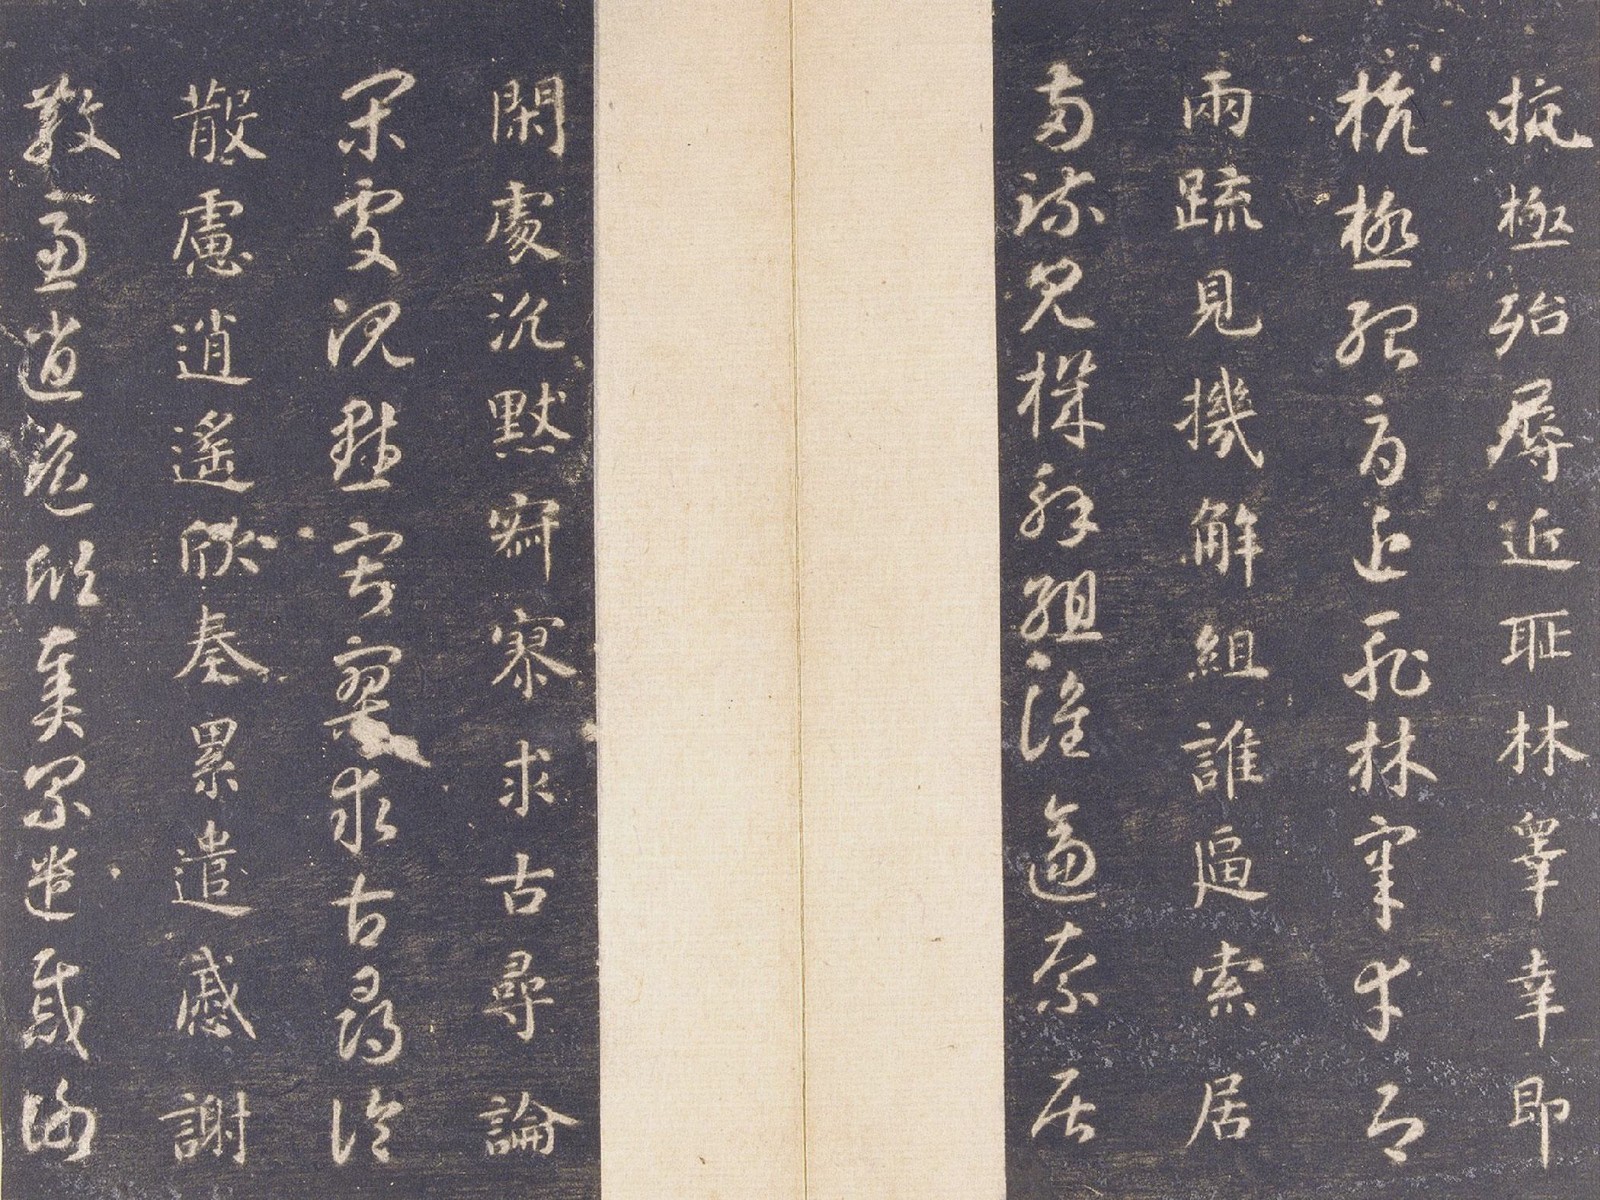 抗極殆辱近恥林睾幸即
抗極殆辱近恥林睾幸即
兩疏見機解組誰逼索居
兩疏見機解組誰逼索居
閑處沉默寂寥求古尋論
閑處沉默寂寥求古尋論
散慮逍遙欣奏累遣慼謝
散慮逍遙欣奏累遣慼謝